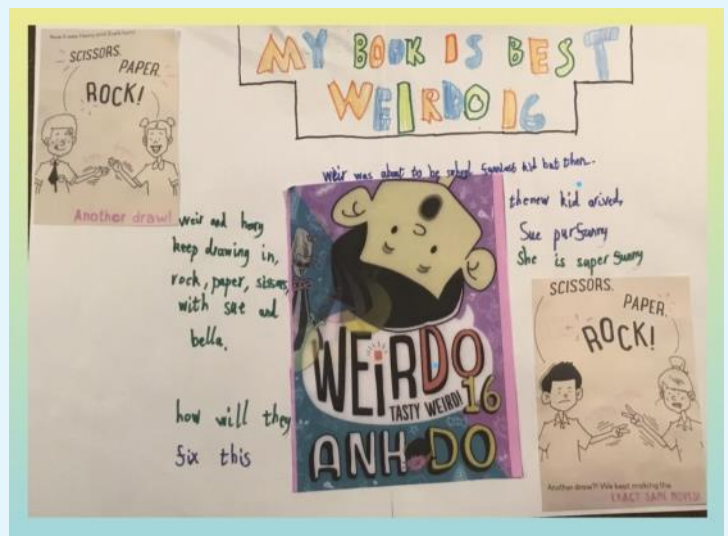 MY BOOK IS BEST
WEIRDO 16
SCISSORS.
PAPER.
ROCK!
Another draw!
weir was about to be funniest kid but then..
the new kid arived,
Sue purfunny
She is super funny
weir and henry
keep drawing in,
rock, paper, sissors,
with sue and
bella.
how will they
fix this
WEiRDO
TASTY WEIRD! 16
ANH DO
SCISSORS.
PAPER.
ROCK!
Another draw?! We kept making the
EXACT SAME MOVES!